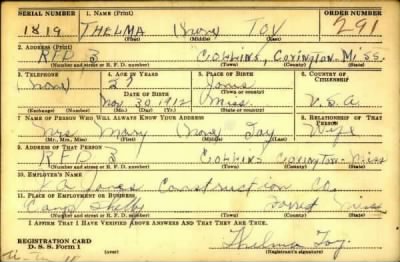 SERIAL NUMBER 1. NAME (Print) ORDER NUMBER
1819 THELMA (None) TOY 291
(First) (Middle) (Last)
2. ADDRESS (Print)
RFD 3 COLLINS, COVINGTON MISS.
(Number and street or R. F. D. number) (Town) (County) (State)
3. TELEPHONE 4. AGE IN YEARS 5. PLACE OF BIRTH 6. COUNTRY OF CITIZENSHIP
(None) 27 Jones
DATE OF BIRTH
Nov. 30 1912 Miss. U.S.A.
(Exchange) (Number) (Mo.) (Day) (Yr.) (State or country)
7. NAME OF PERSON WHO WILL ALWAYS KNOW YOUR ADDRESS 8. RELATIONSHIP OF THAT PERSON
Mrs. Mary (None) Toy Wife
(Mr., Mrs., Miss) (First) (Middle) (Last)
9. ADDRESS OF THAT PERSON
RFD 3 Collins Covington Miss
(Number and street or R. F. D. number) (Town) (County) (State)
10. EMPLOYER'S NAME
Construction Co.
11. PLACE OF EMPLOYMENT OR BUSINESS
Camp Shelby Forrest Miss
(Number and street or R. F. D. number) (Town) (County) (State)
I AFFIRM THAT I HAVE VERIFIED ABOVE ANSWERS AND THAT THEY ARE TRUE.
REGISTRATION CARD
D. S. S. Form 1
Thelma Toy
(Registrant's signature)